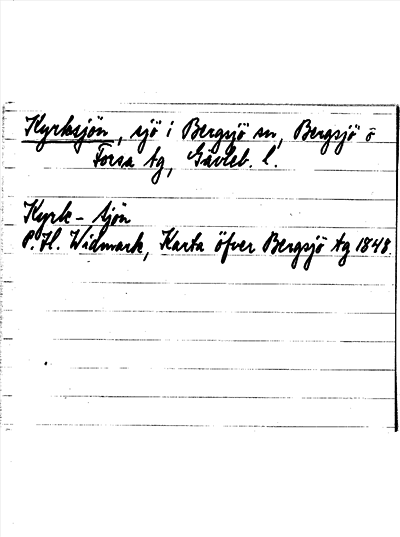 Kyrksjön, sjö i Bergsjö sn, Bergsjö o
Forsa tg, Gävleb. l.
Kyrk-sjön
P. H. Widmark, Karta öfver Bergsjö tg 1848